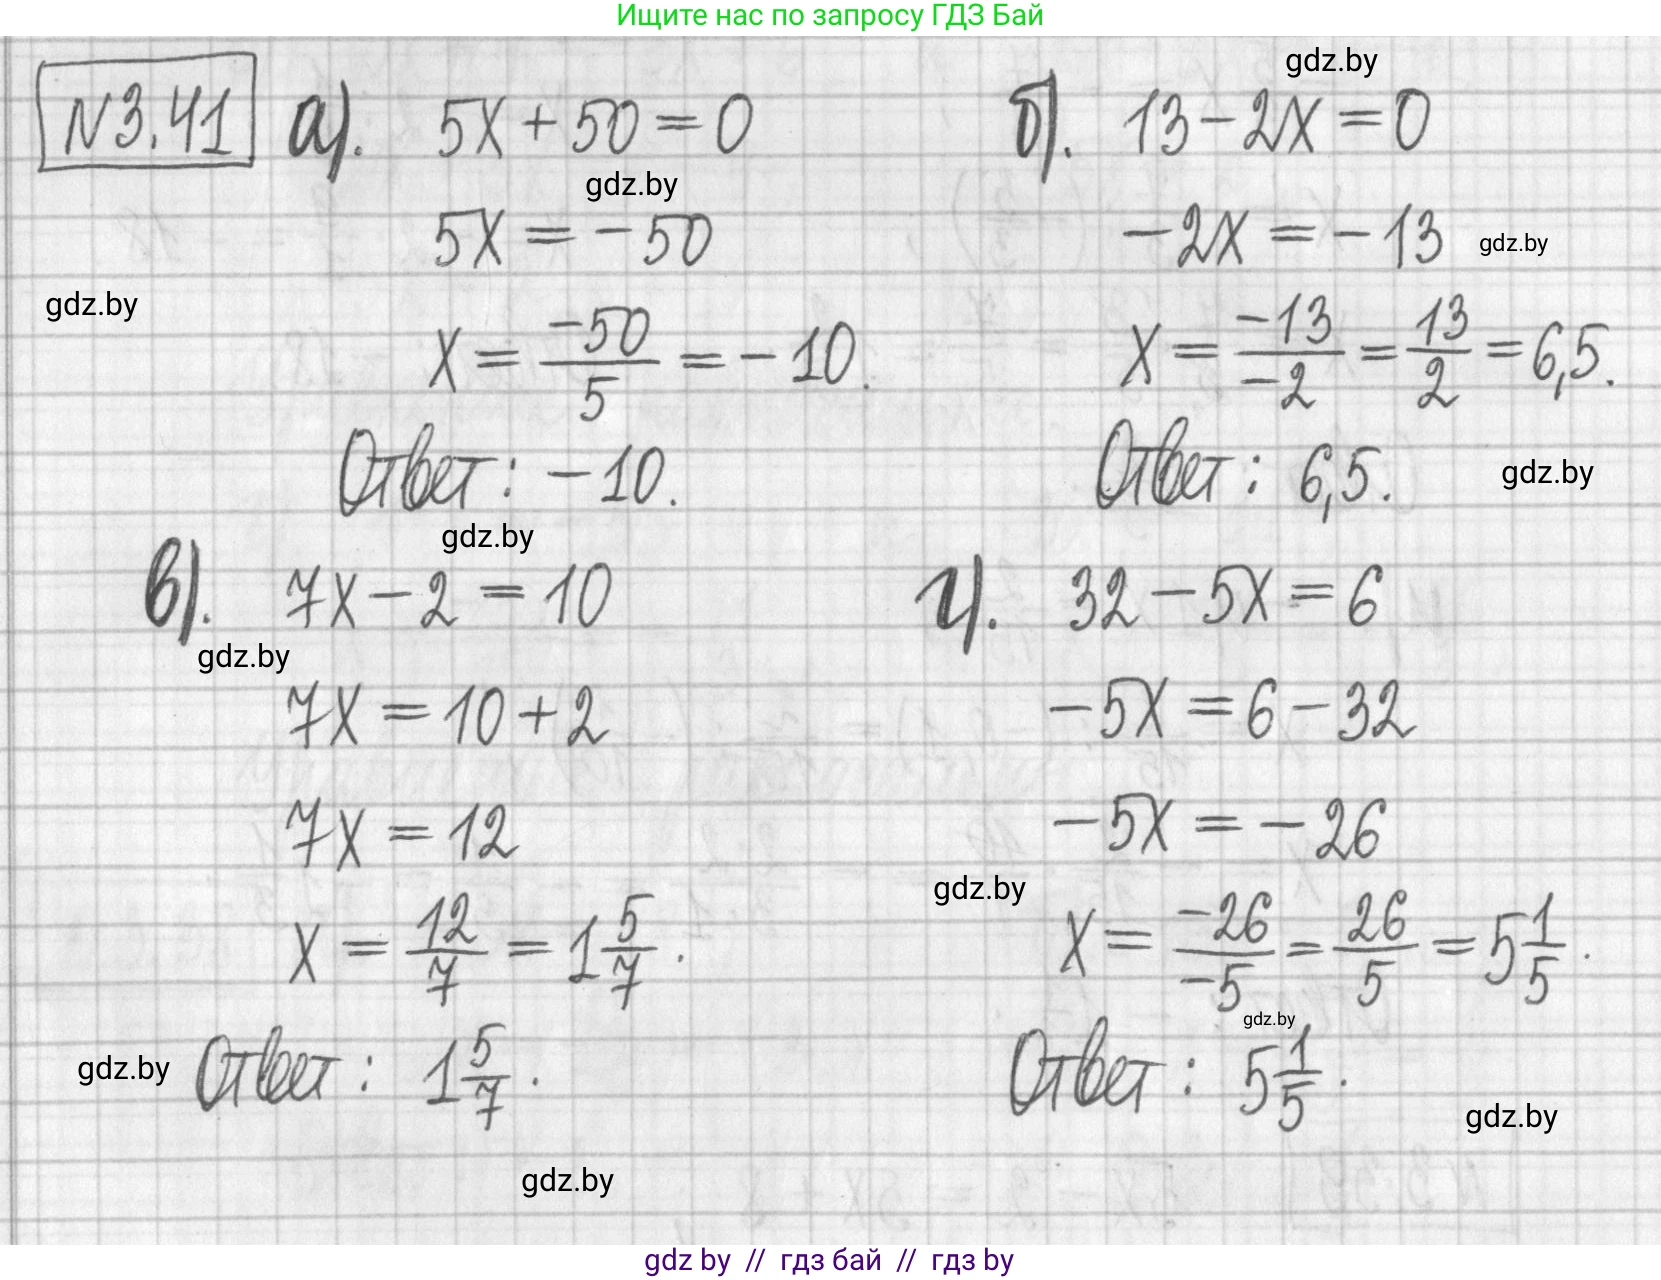 Ищите нас по запросу ГДЗ Бай
gdz.by
N3.41 а). 5x + 50 = 0
б). 13 - 2x = 0
gdz.by
5x = -50
-2x = -13
gdz.by
gdz.by
x = -50/5 = -10.
x = -13/-2 = 13/2 = 6,5.
Ответ: -10.
Ответ: 6,5.
gdz.by
gdz.by
в). 7x - 2 = 10
г). 32 - 5x = 6
gdz.by
7x = 10 + 2
-5x = 6 - 32
7x = 12
-5x = -26
gdz.by
x = 12/7 = 1 5/7.
x = -26/-5 = 26/5 = 5 1/5.
gdz.by
gdz.by
Ответ: 1 5/7.
Ответ: 5 1/5.
gdz.by
gdz.by
gdz by // гдз бай // гдз by